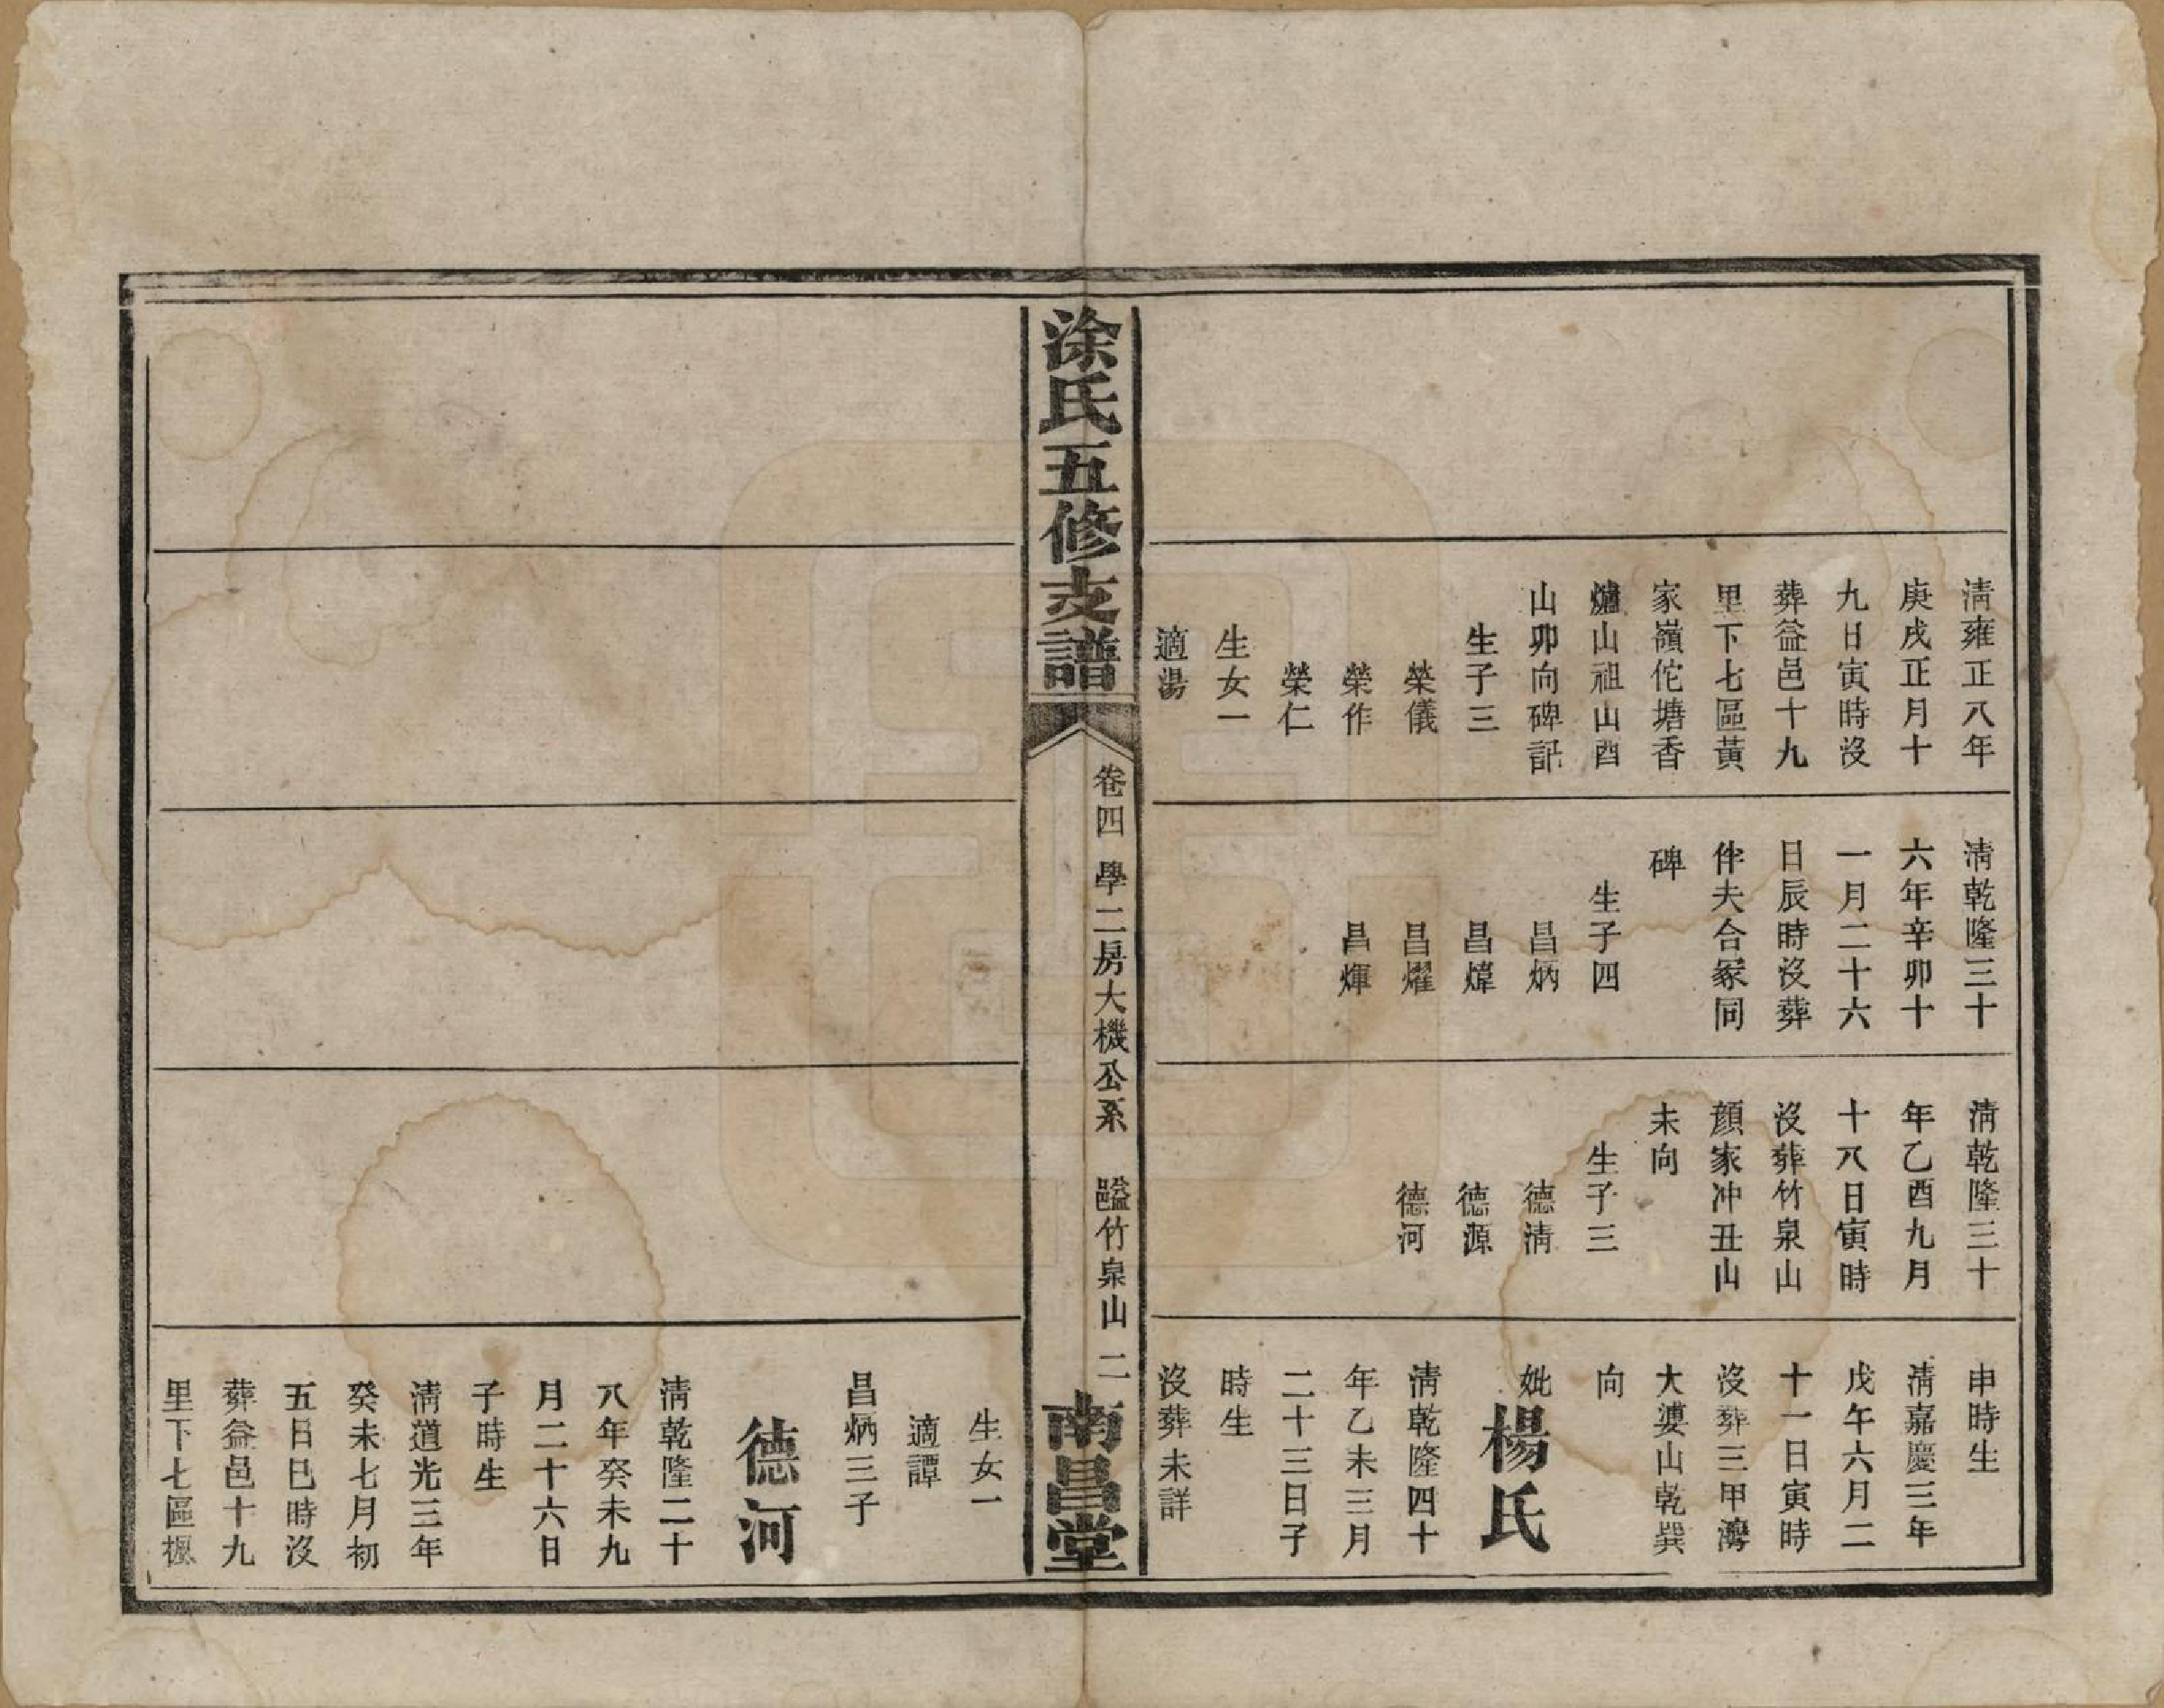 清雍正八年
庚戌正月十
九日寅時沒
葬益邑十九
里下七區黃
家嶺佗塘香
爐山祖山酉
山卯向碑記
生子三
榮儀
榮作
榮仁
生女一
適湯
清乾隆三十
六年辛卯十
一月二十六
日辰時沒葬
伴夫合冢同
碑
生子四
昌炳
昌煒
昌燿
昌煇
清乾隆三十
年乙酉九月
十八日寅時
沒葬竹泉山
顏家冲丑山
未向
生子三
德清
德源
德河
申時生
清嘉慶三年
戊午六月二
十一日寅時
沒葬三甲灣
大婆山乾巽
向
妣楊氏
清乾隆四十
年乙未三月
二十三日子
時生
沒葬未詳
涂氏五修支譜
卷四 學二房大機公系 益邑竹泉山 二
南昌堂
生女一
適譚
昌炳三子
德河
清乾隆二十
八年癸未九
月二十六日
子時生
清道光三年
癸未七月初
五日巳時沒
葬益邑十九
里下七區楓